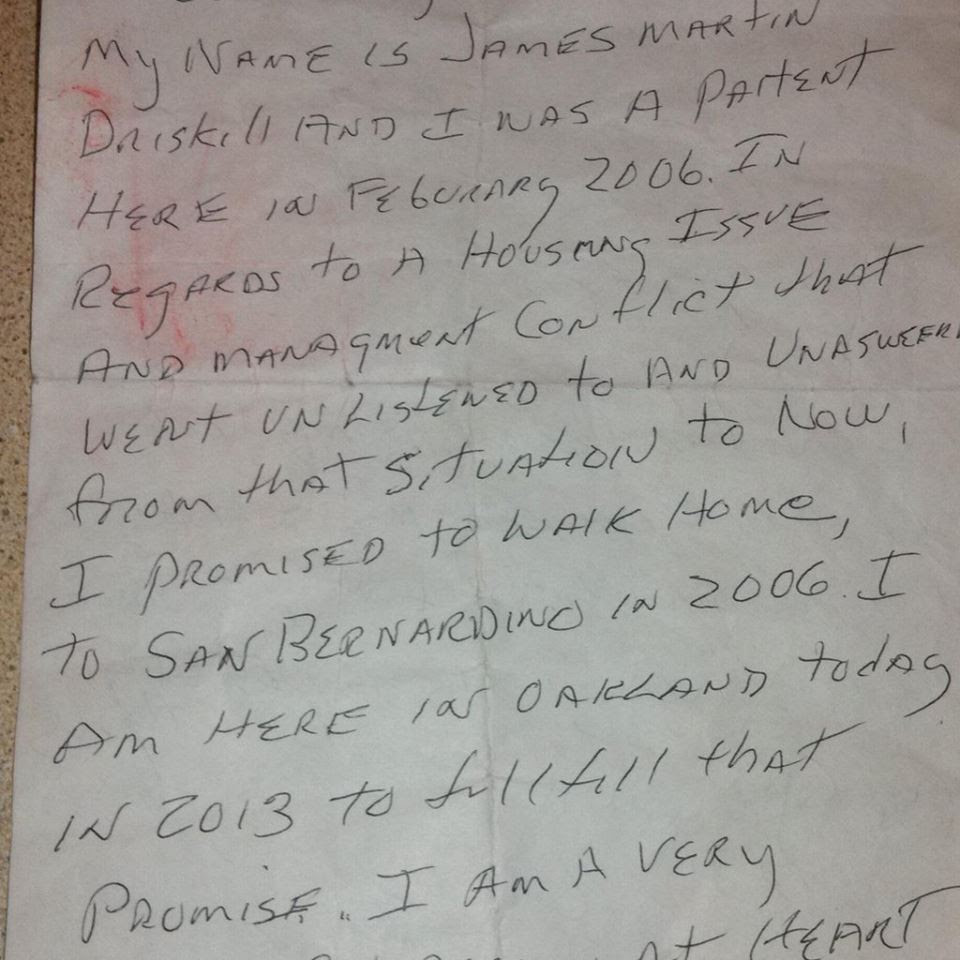 My Name is James Martin
Driskill And I was A Patient
Here in Feburary 2006. In
Regards to A Housing Issue
And managment Conflict that
went unlistened to And Unasweer
from that Situation to Now,
I promised to walk Home,
to San Bernardino in 2006. I
Am Here in Oakland today
in 2013 to fullfill that
Promise. I Am A very
At Heart